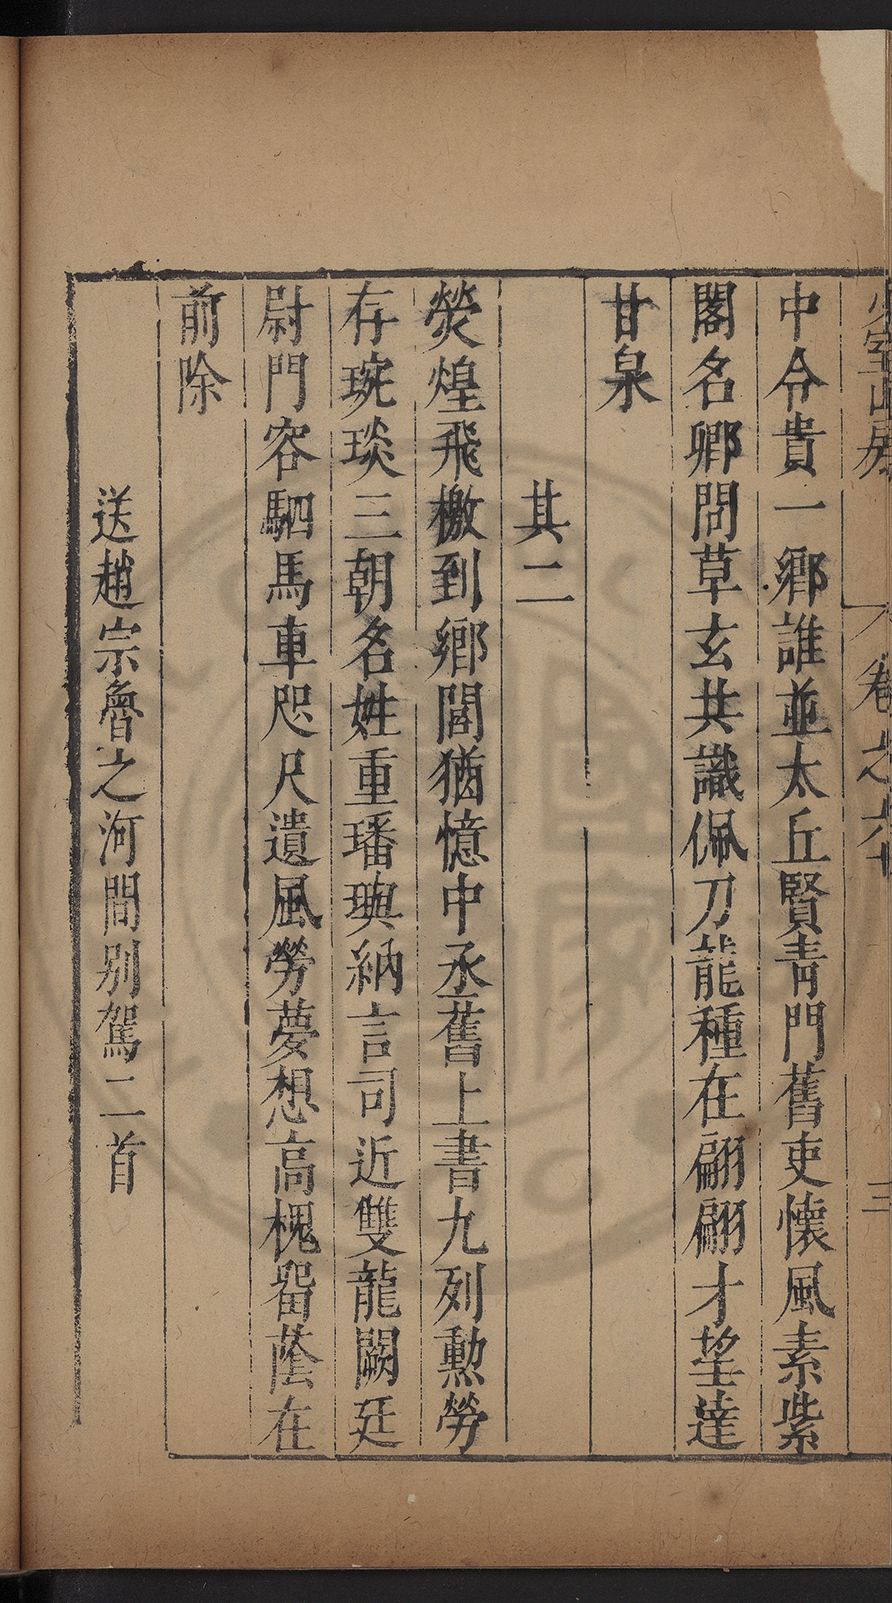 少室山房 卷之六十 三
中令貴一鄉誰並太丘賢青門舊吏懷風素紫
閣名卿問草玄共識佩刀龍種在翩翩才望達
甘泉
其二
熒煌飛檄到鄉閭猶憶中丞舊上書九列勲勞
存琬琰三朝名姓重璠璵納言司近雙龍闕廷
尉門容駟馬車咫尺遺風勞夢想高槐畱蔭在
前除
送趙宗魯之河間別駕二首